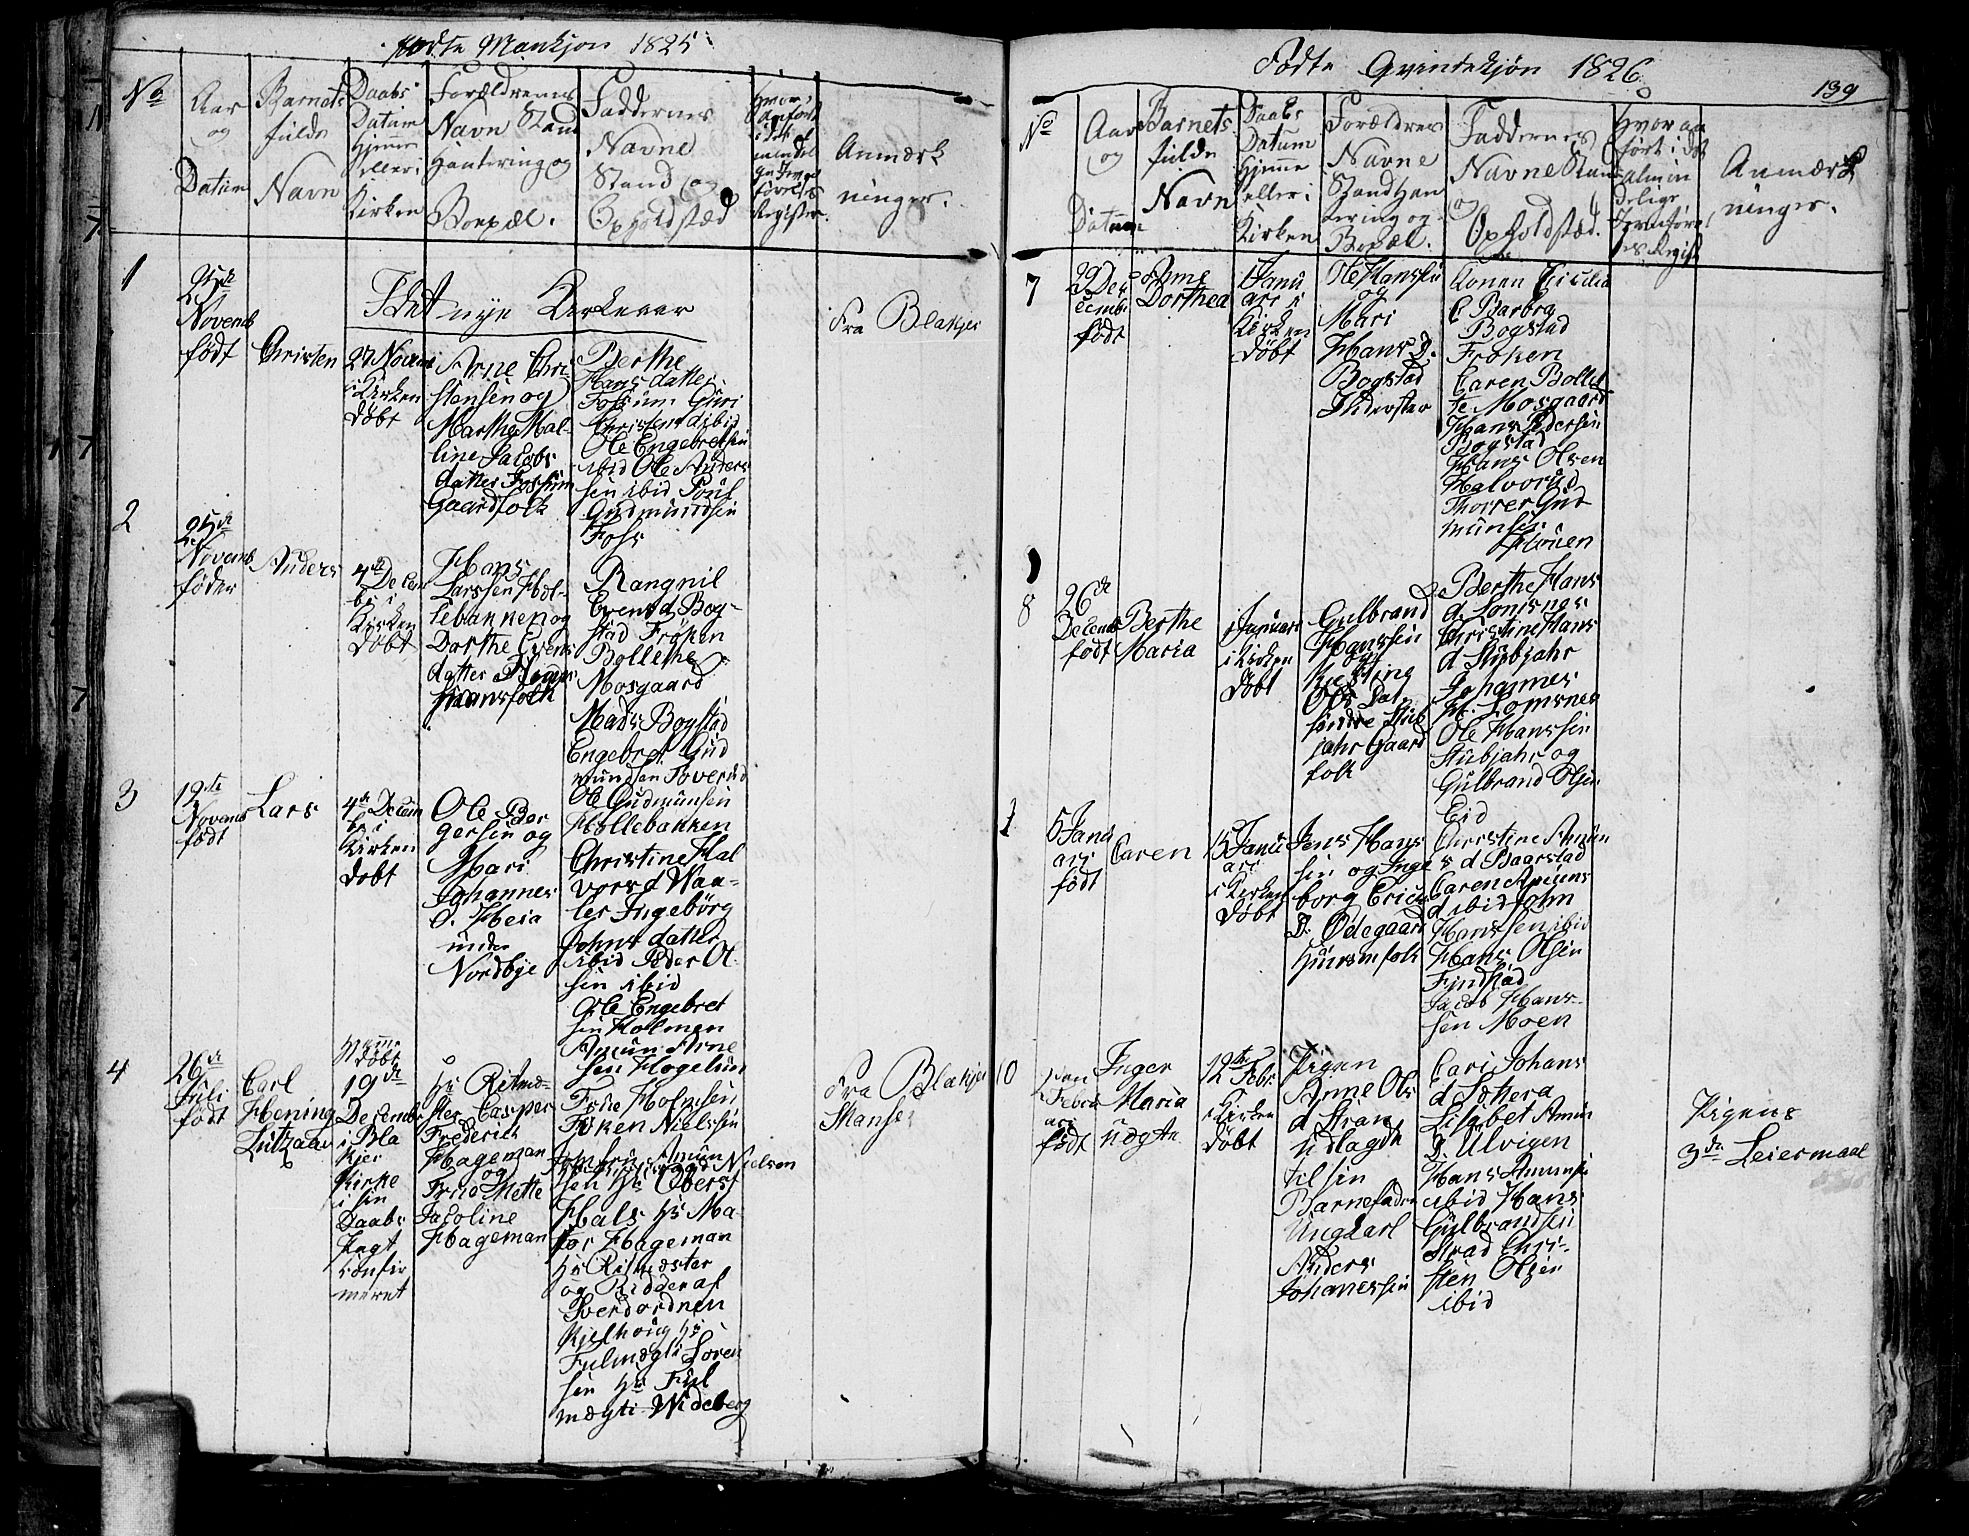 Fødte Mankjøn 1825
No
Aar
og
Datum
Barnets
fulde
Navn
Daabs
Datum
Hjemme
eller i
Kirken
Forældrenes
Navn Stand
Hantering og
Boepæl.
Faddernes
Navne
Stand og
Opholdstæd
Hvor
anført
i det
almindel
Register
Anmærk
ninger.
1
25de
Novemb
født
Christen
I det nye Kirkeaar
27 Novem
i Kirken
døbt
Arne Chri
stensen og
Marthe Mal-
line Jacobs
datter Fossum
Gaardfolk
Berthe
Hansdatter
Fossum Guri
Christensd ibid
Ole Engebretsen
ibid Ole Anders
sen ibid Poul
Gudmundsen
Foss
Fra Blakjer
2
25de
Novemb
føder
Anders
4de Decem
br i
Kirken
døbt
Hans
Larssen Hol-
lebakken og
Dorthe Evens
datter
Huusmandsfolk
Rangnil
Evensd Bog-
stad Frøken
Bollethe
Mosgaard
Mads Bogstad
Engebret Gud
mundsen Toverud
Ole Gudmunsen
Hollebakken
3
12te
Novemb
født
Lars
4de Decem
br i
Kirken
døbt
Ole Bør
gersen og
Mari
Johannes
D. Heia
under
Nordbye
Christine Hal
vorsd Waa-
ler Ingebörg
Johnsdatter
ibid Peder Ol
sen ibid
Ole Engebret
sen Holmen
Amun Arne
sen Hogelund
4
26de
Juli
født
Carl
Hening
Lutzaav
Hjeme
døbt
19de
Decembr
i Bla
kjer
Kirke
i sin
Daabs
Pagt
confir
meret
Hr Ritmæ-
ster Casper
Frederich
Hageman
og
Frue Mette
Jacoline
Hageman
Frue Holmsen
Frøken Nielssen
Jomfru Amun
sen Hr Oberst
Hals Hr Ma-
jor Hageman
Hr Ritmæster
og Ridder af
Sverdordnen
Kjelhoug Hr
Fulmægti Soren
sen Hr Ful
mægti Wideberg
Fra Blakjer
Fødte Qvindekjøn 1826
139
No
Aar
og
Datum
Barnets
fulde
Navn
Daabs
Datum
Hjemme
eller i
Kirken
Forældres
Navne
Stand Han
tering og
Boepæl.
Faddernes
Navne Stand
og
Opholdstæd.
Hvor an
ført i det
almin
delige
Jevnføre
Anmærk
ninger.
7
29 De
cemb
født
Anne
Dorthea
1 Janu
ari i
Kirken
døbt
Ole Hanssen
og
Mari
Hans D.
Bogstad
Konen Cicilia
C Barbra
Bogstad
Frøken
Caren Bollet
te Mosgaard
Hans Pedersen
Bogstad
Hans Olsen
Halvorud
Thorrer Gud
munsen
8
26de
Decemb
født
Berthe
Maria
1 Januari
i Kirken
døbt
Gulbrand
Hanssen
og
Ols Dat
søndre Stub
jahr Gaard
folk
Berthe Hans
d Lomsnes
Christine Hans
d Stubjahr
Johannes
H. Lomsnes
Ole Hanssen
Stubjahr og
Gulbrand Olsen
Eid
1
5 Janu
ari
født
Caren
15 Janu
ari
i Kirken
døbt
Jens Hans
sen og Inge
borg Erics
D. Ødegaard
Huusmfolk
Christine Amun
s d Baarstad
Caren Amuns
d ibid John
Hanssen ibid
Hans Olsen
Fjndstad
Jacob Hans-
sen Moen
10
Febru
ari
født
Inger
Maria
uægte
12te
Febr
i Kirken
døbt
Pigen
Anne Ols
d Stran
udlagde
til sin
Barnefader
Ungkarl
Anders
Johanessen
Cari Johans
d Søttera
Lisabet Amun
D. Ulvigen
Hans Amunsen
ibid Hans
Gulbrandsen
Strad Chri-
sten Olsen
ibid
Pigens
3de Leiermaal